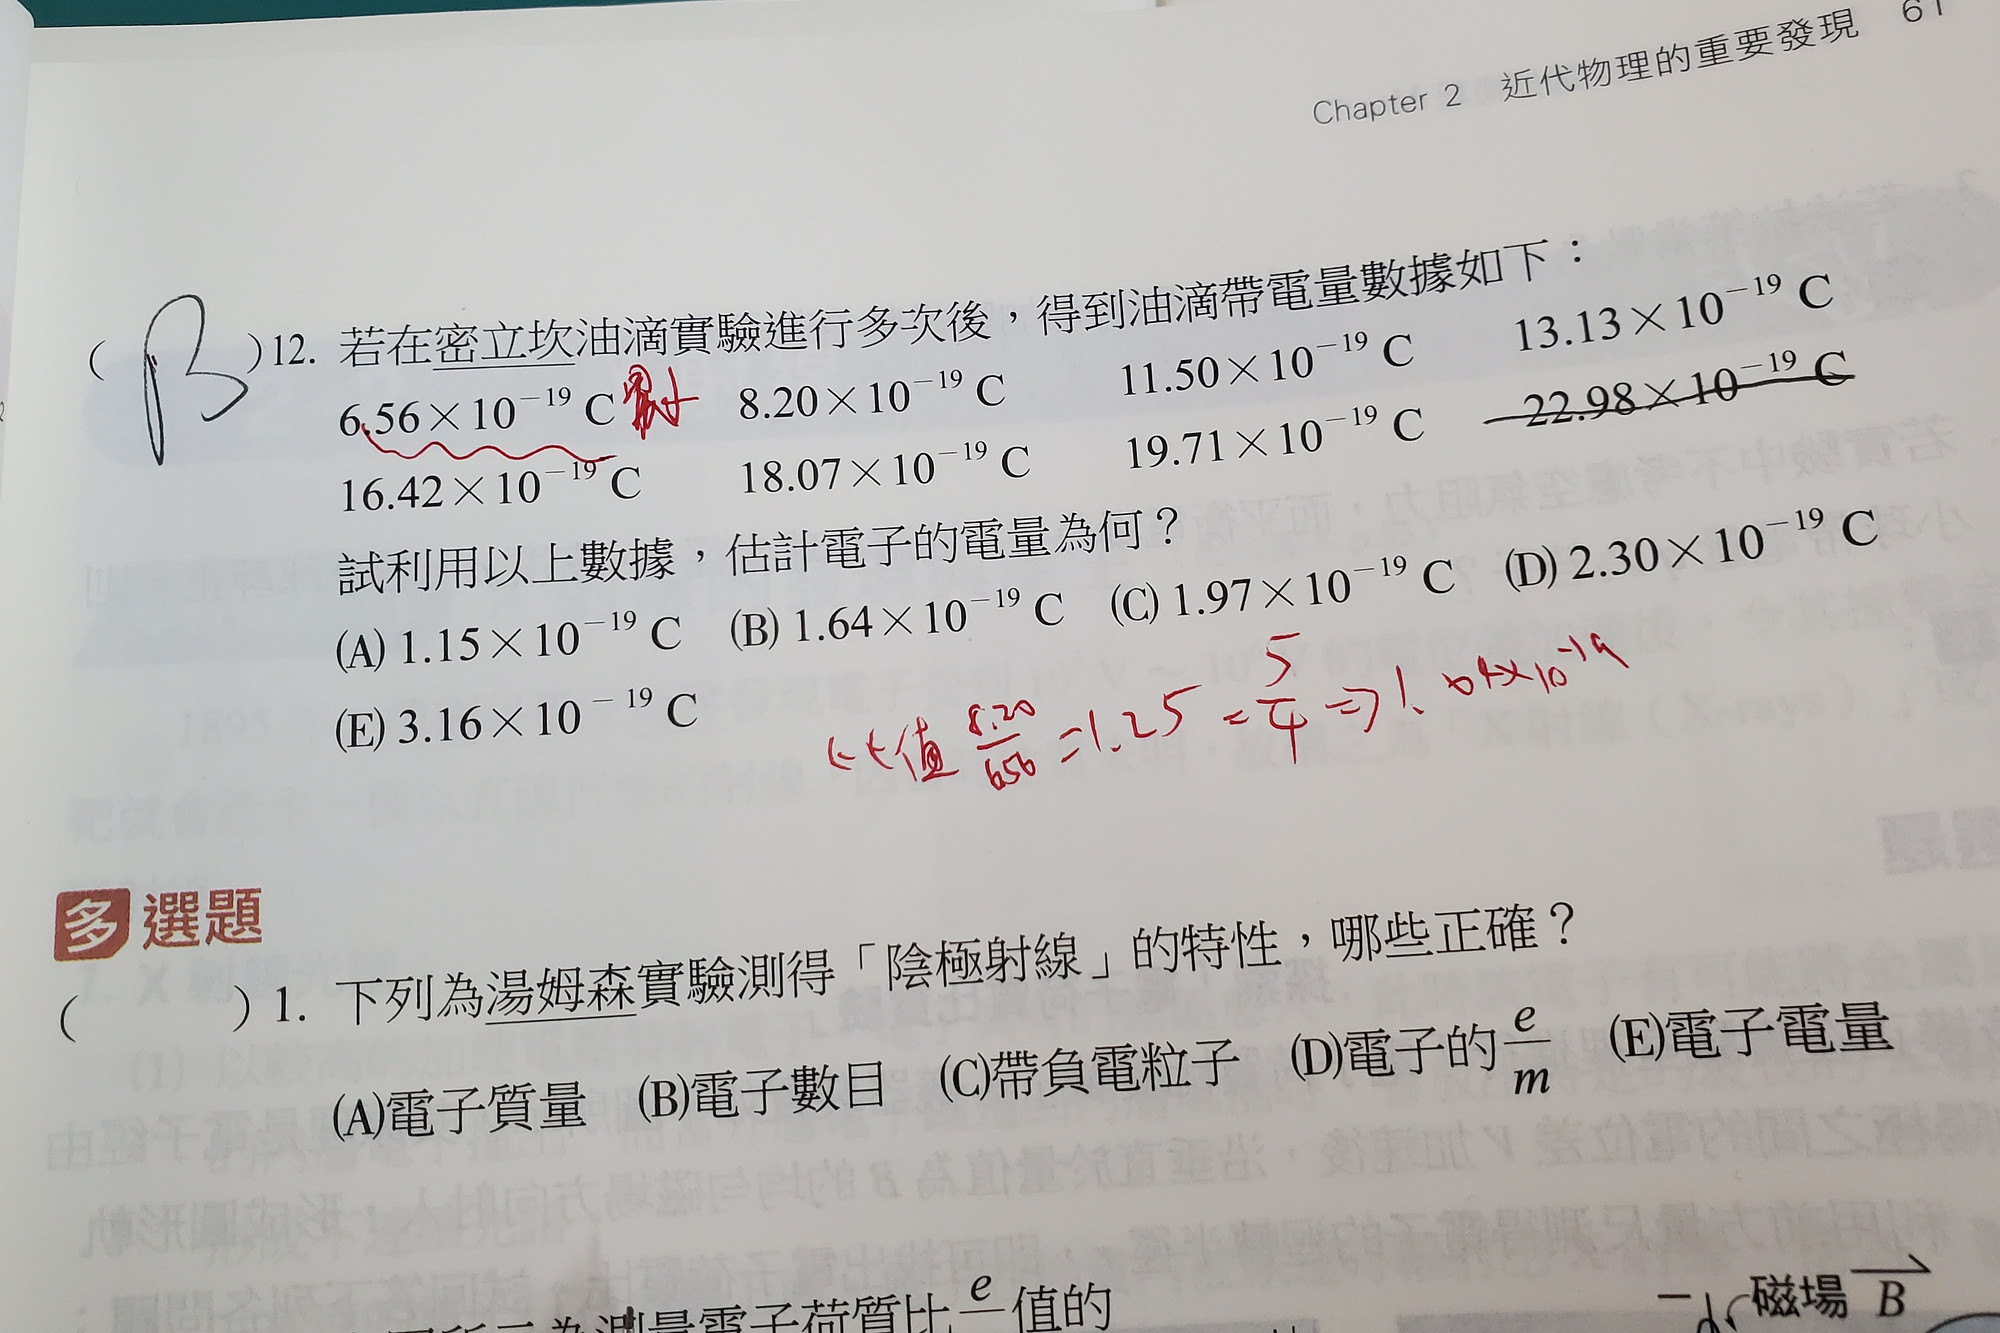 Chapter 2 近代物理的重要發現 61
( B )12. 若在密立坎油滴實驗進行多次後，得到油滴帶電量數據如下：
6.56×10⁻¹⁹ C 8.20×10⁻¹⁹ C 11.50×10⁻¹⁹ C 13.13×10⁻¹⁹ C
16.42×10⁻¹⁹ C 18.07×10⁻¹⁹ C 19.71×10⁻¹⁹ C 22.98×10⁻¹⁹ C
試利用以上數據，估計電子的電量為何？
(A) 1.15×10⁻¹⁹ C (B) 1.64×10⁻¹⁹ C (C) 1.97×10⁻¹⁹ C (D) 2.30×10⁻¹⁹ C
(E) 3.16×10⁻¹⁹ C
比值 8.20/656 = 1.25 = 5/4 ⇒ 1.64×10⁻¹⁹
多選題
( )1. 下列為湯姆森實驗測得「陰極射線」的特性，哪些正確？
(A)電子質量 (B)電子數目 (C)帶負電粒子 (D)電子的 e/m (E)電子電量
測量電子荷質比 e 值的
磁場 B